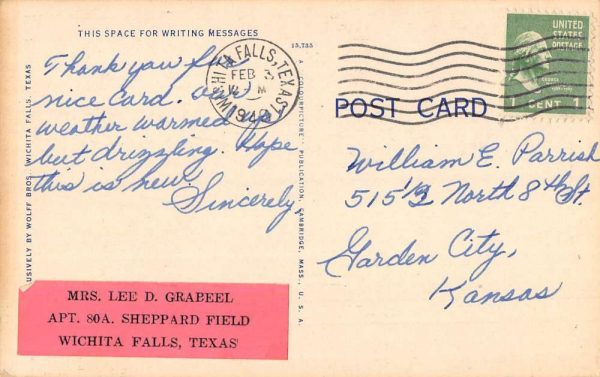 THIS SPACE FOR WRITING MESSAGES
13,735
Thank you for
nice card. Our
weather warmed up
but drizzling. Hope
this is new.
Sincerely,
MRS. LEE D. GRABEEL
APT. 80A. SHEPPARD FIELD
WICHITA FALLS, TEXAS
USIVELY BY WOLFF BROS., WICHITA FALLS, TEXAS
A "COLOURPICTURE" PUBLICATION, CAMBRIDGE, MASS., U. S. A.
WICHITA FALLS, TEXAS
FEB 3
M
UNITED
STATES
POSTAGE
1 CENT 1
POST CARD
William E. Parrish
515 1/2 North 8th St.
Garden City,
Kansas